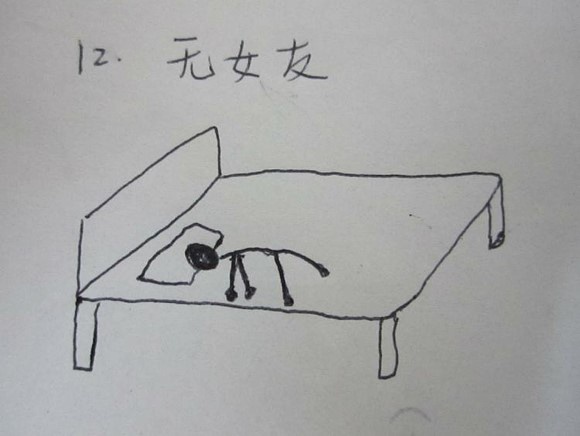 12. 无女友